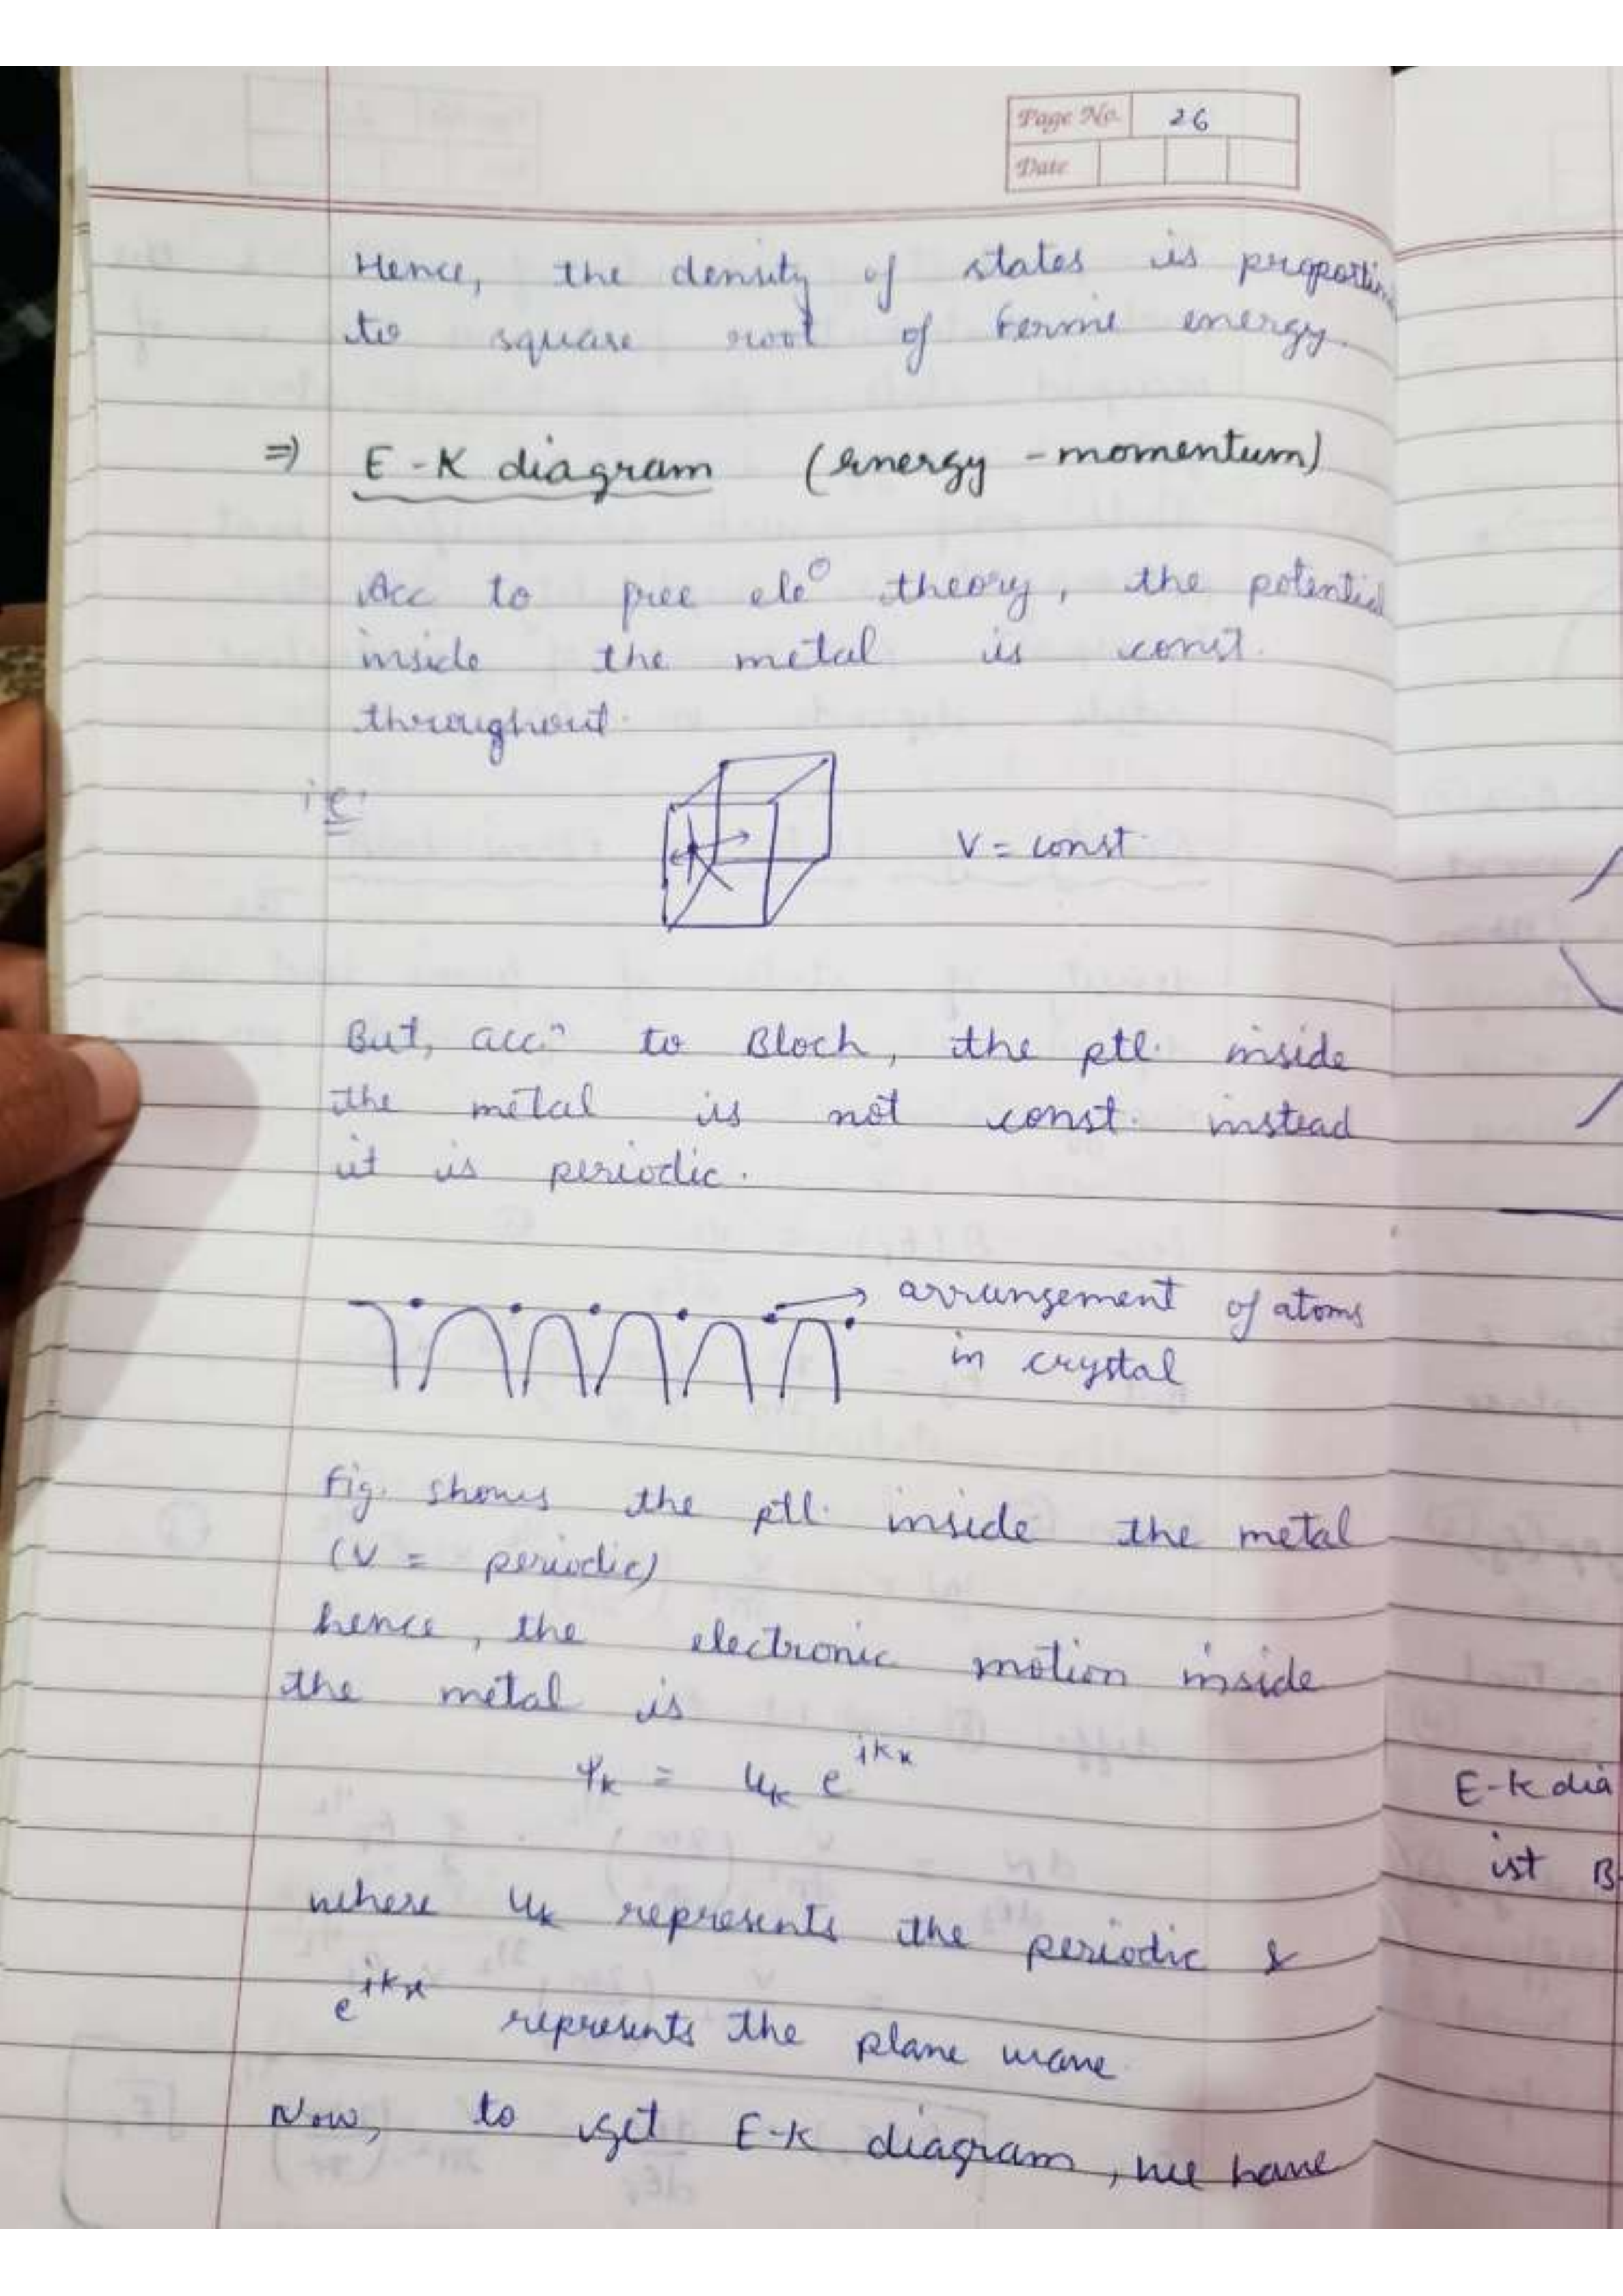 Page No. 26
Date
Hence, the density of states is proportin
to square root of Fermi energy.
⇒ E-K diagram (energy - momentum)
Acc to free ele° theory, the potential
inside the metal is const.
throughout.
i.e.
V = const.
But, acc.ⁿ to Bloch, the ptl. inside
the metal is not const. instead
it is periodic.
→ arrangement of atoms
in crystal
Fig. shows the ptl. inside the metal
(V = periodic)
hence, the electronic motion inside
the metal is
Ψk = uk e^ikx
where uk represents the periodic &
e^ikx represents the plane wave.
Now, to get E-K diagram, we have
E-k dia
ist B